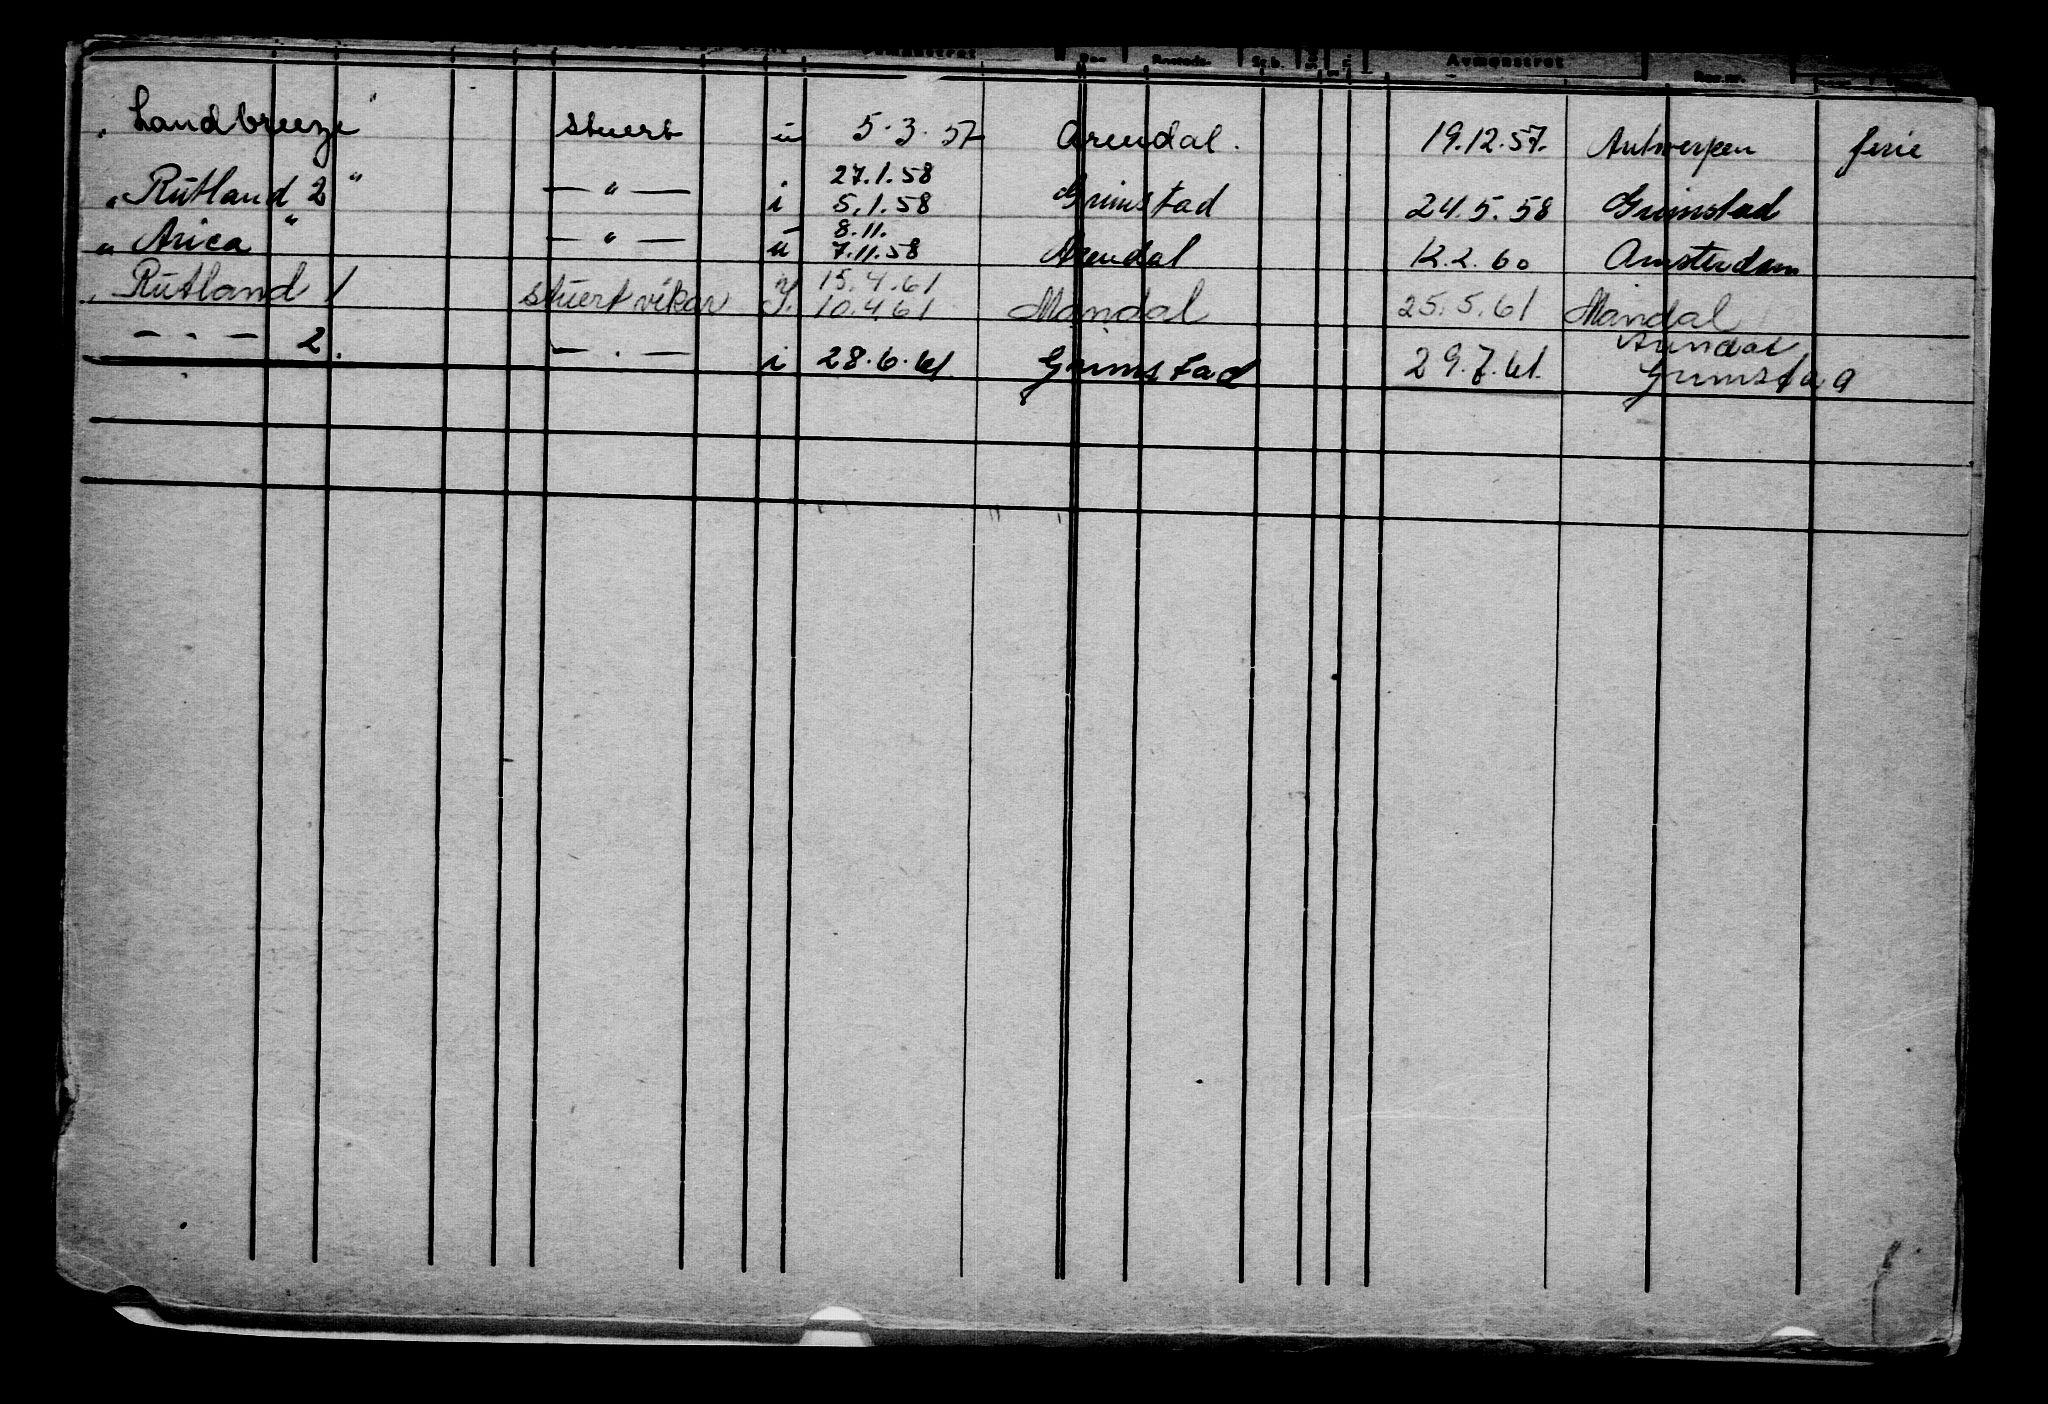 Avmønstret
"Landbreeze" stuert u 5.3.57 Arendal. 19.12.57. Antwerpen ferie
27.1.58
"Rutland 2" — " — i 5.1.58 Grimstad 24.5.58 Grimstad
8.11.
"Arica" — " — u 7.11.58 Arendal 12.2.60 Amsterdam
15.4.61
"Rutland 1 stuert vikar I. 10.4.61 Mandal 25.5.61 Mandal
Arendal
— " — 2. — " — i 28.6.61. Grimstad 29.7.61. Grimstad